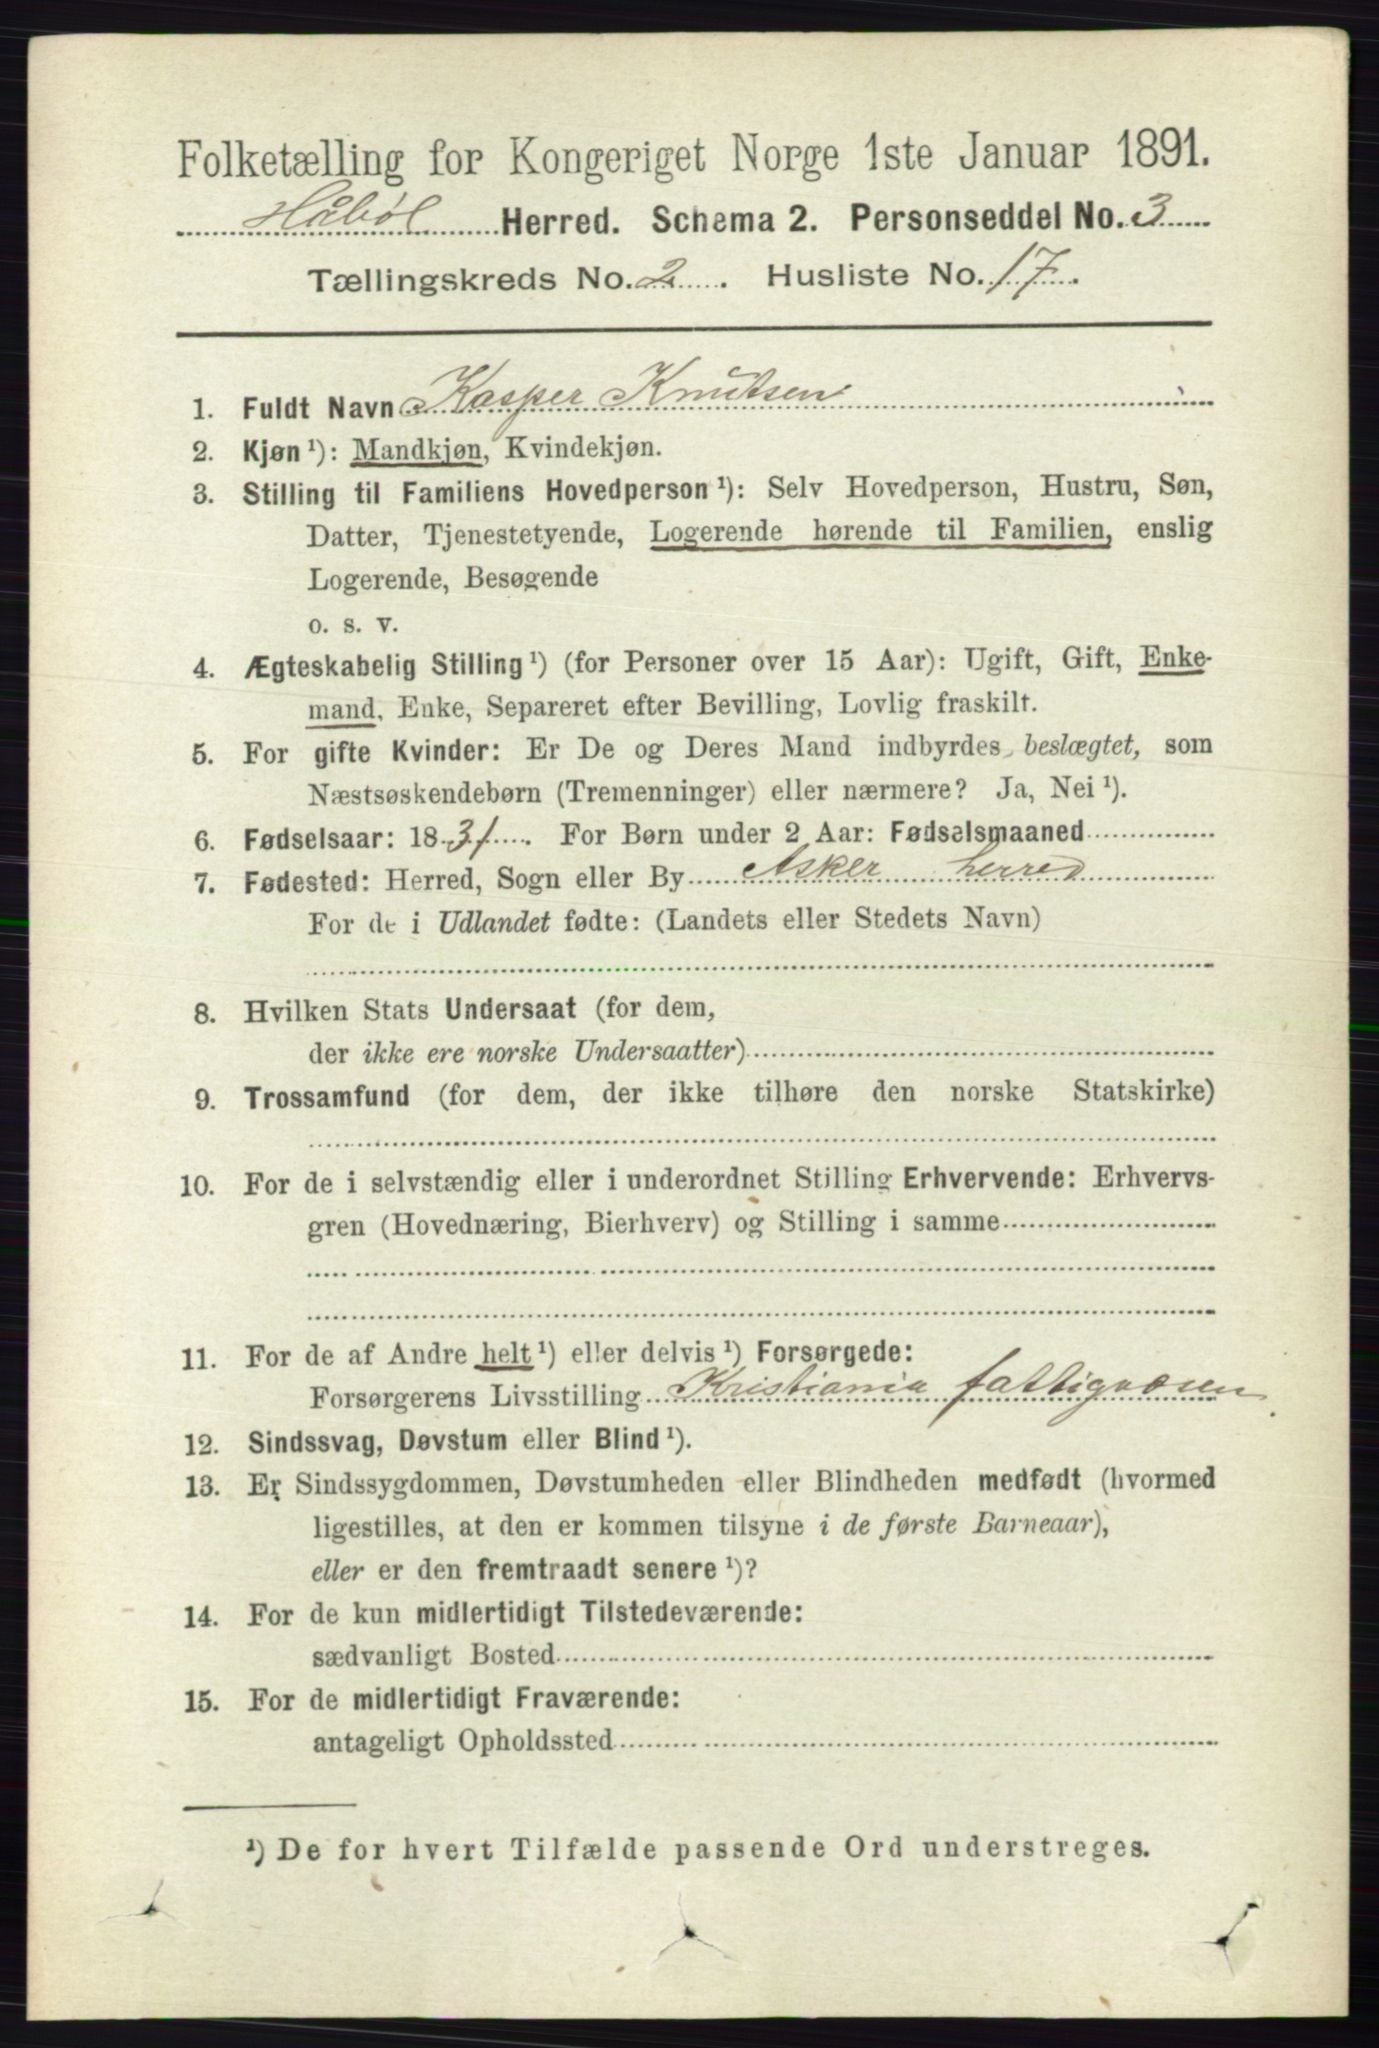 Folketælling for Kongeriget Norge 1ste Januar 1891.
Håbøl Herred. Schema 2. Personseddel No. 3
Tællingskreds No. 2. Husliste No. 17.
1. Fuldt Navn Kasper Knutsen
2. Kjøn ¹): Mandkjøn, Kvindekjøn.
3. Stilling til Familiens Hovedperson ¹): Selv Hovedperson, Hustru, Søn,
Datter, Tjenestetyende, Logerende hørende til Familien, enslig
Logerende, Besøgende
o. s. v.
4. Ægteskabelig Stilling ¹) (for Personer over 15 Aar): Ugift, Gift, Enke-
mand, Enke, Separeret efter Bevilling, Lovlig fraskilt.
5. For gifte Kvinder: Er De og Deres Mand indbyrdes beslægtet, som
Næstsøskendebørn (Tremenninger) eller nærmere? Ja, Nei ¹).
6. Fødselsaar: 1831. For Børn under 2 Aar: Fødselsmaaned
7. Fødested: Herred, Sogn eller By Asker herred
For de i Udlandet fødte: (Landets eller Stedets Navn)
8. Hvilken Stats Undersaat (for dem,
der ikke ere norske Undersaatter)
9. Trossamfund (for dem, der ikke tilhøre den norske Statskirke)
10. For de i selvstændig eller i underordnet Stilling Erhvervende: Erhvervs-
gren (Hovednæring, Bierhverv) og Stilling i samme
11. For de af Andre helt ¹) eller delvis ¹) Forsørgede:
Forsørgerens Livsstilling Kristiania fattigvæsen
12. Sindssvag, Døvstum eller Blind ¹).
13. Er Sindssygdommen, Døvstumheden eller Blindheden medfødt (hvormed
ligestilles, at den er kommen tilsyne i de første Barneaar),
eller er den fremtraadt senere ¹)?
14. For de kun midlertidigt Tilstedeværende:
sædvanligt Bosted
15. For de midlertidigt Fraværende:
antageligt Opholdssted
¹) De for hvert Tilfælde passende Ord understreges.